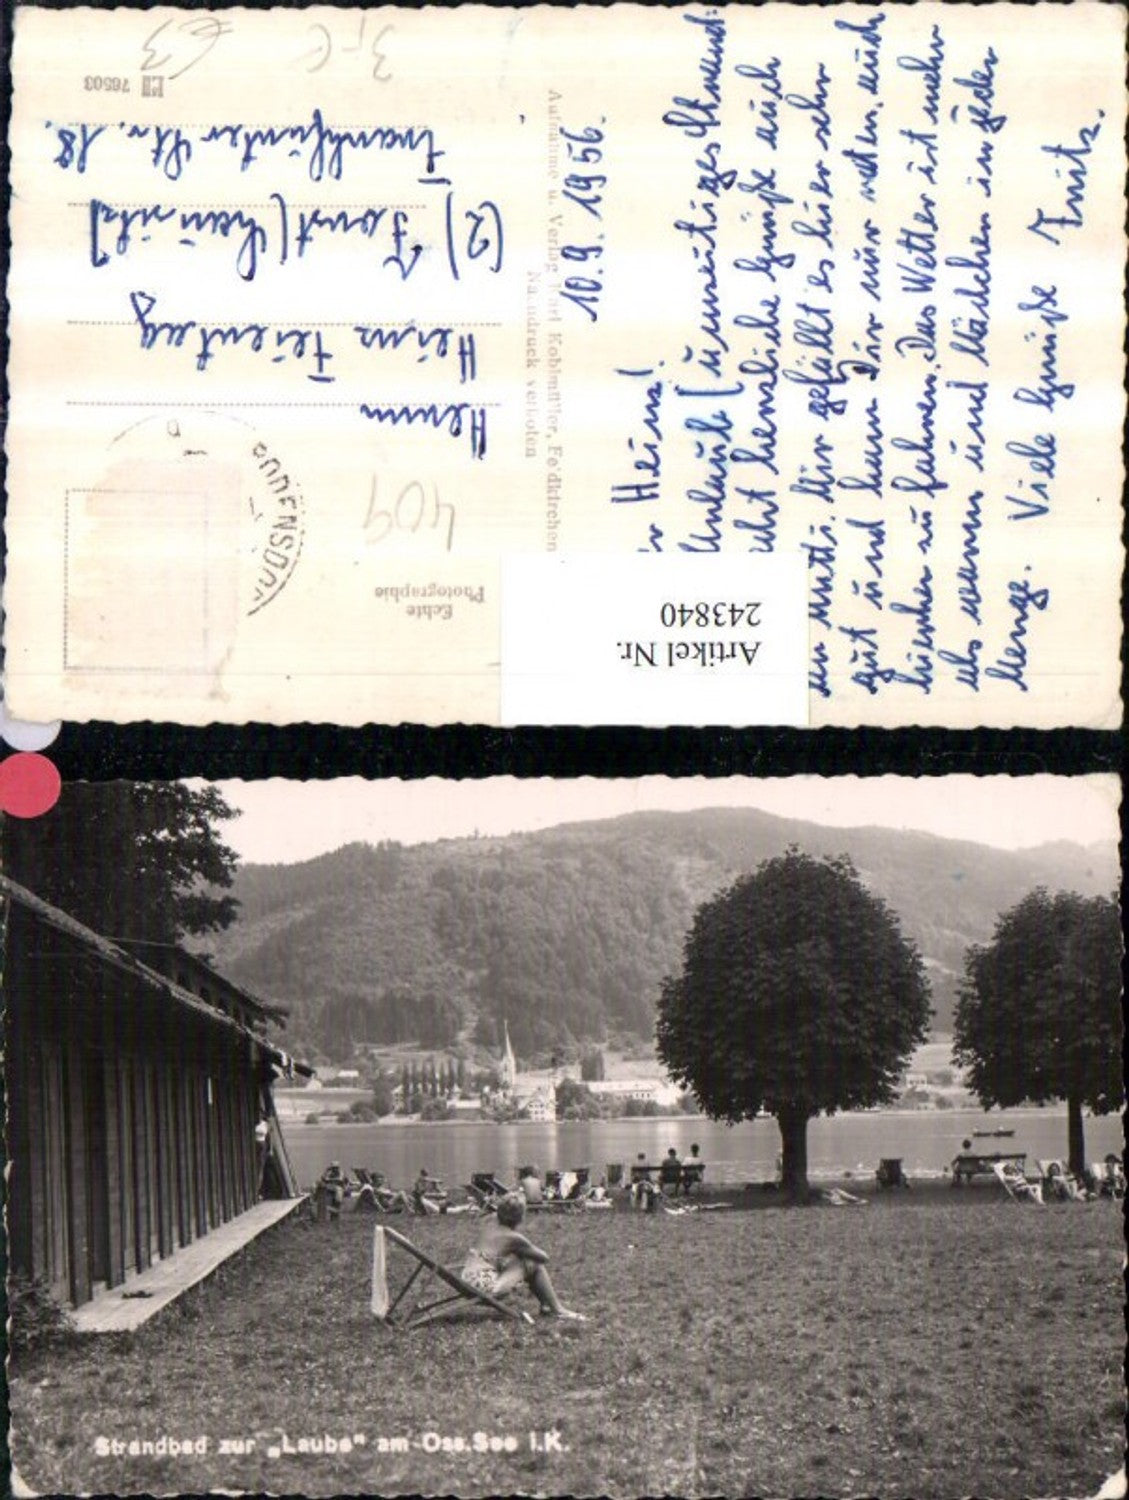 10.9.1956.
Heinz!
Urlaub (unseitiges
herzliche Grüße auch
Mutti. Mir gefällt es hier sehr
gut und kann Dir nur raten, auch
hierher zu fahren. Das Wetter ist mehr
als warm und Mädchen in jeder
Menge. Viele Grüße Fritz.
Aufnahme u. Verlag Karl Kohlmüller, Feldkirchen
Nachdruck verboten
Echte
Photographie
409
Herrn
Heinz Feientag
(2) Forst (Lausitz)
Frankfurter Str. 18.
76503
3,- €
€3
Artikel Nr.
243840
Strandbad zur „Laube" am Oss.See i.K.